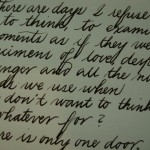 here are days I refuse
to think, to exami
oments as if they we
ximent of love, desp
nger and all the n
ds we use when
don't want to think
whatever for?
re is only one door.